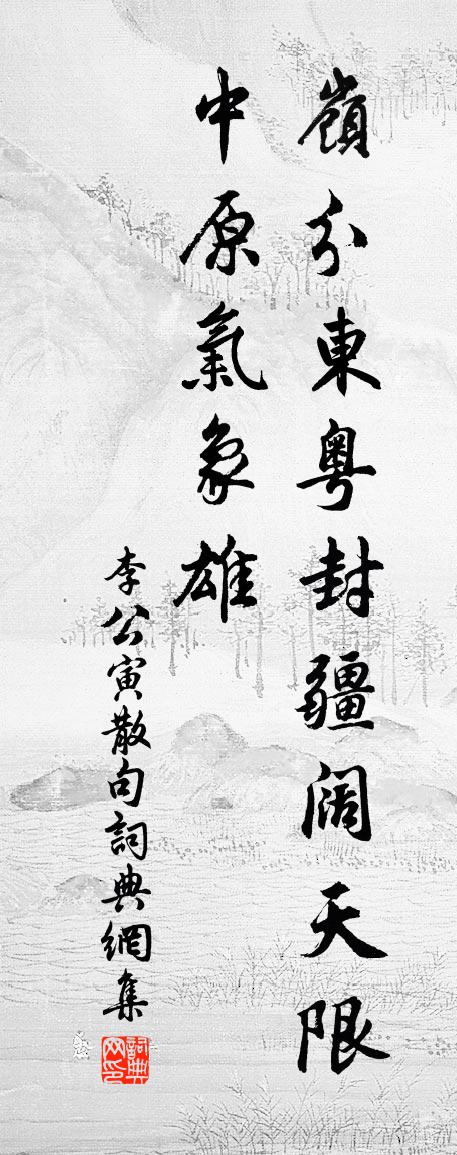 嶺分東粵封疆闊天限
中原氣象雄
李公寅散句詞典網集
詞典网印